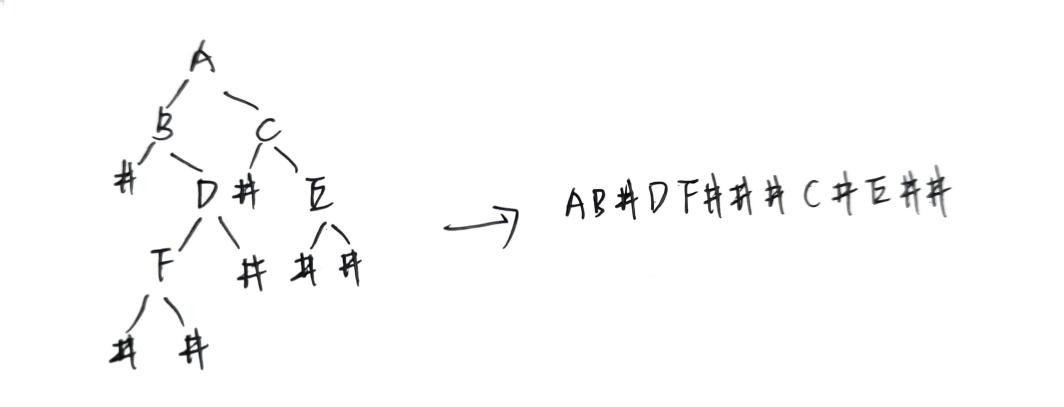 A
B C
# D # E
F # # #
# #
AB#DF###C#E##